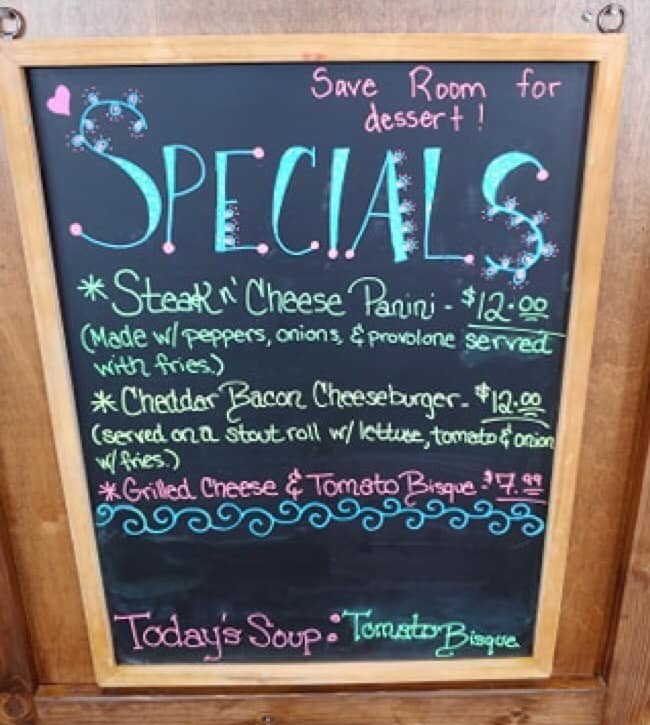 Save Room for
dessert!
SPECIALS
* Steak n' Cheese Panini - $12.00
(Made w/ peppers, onions, & provolone served
with fries.)
* Cheddar Bacon Cheeseburger - $12.00
(served on a stout roll w/ lettuce, tomato & onion
w/ fries.)
* Grilled Cheese & Tomato Bisque - $7.99
Today's Soup: Tomato Bisque